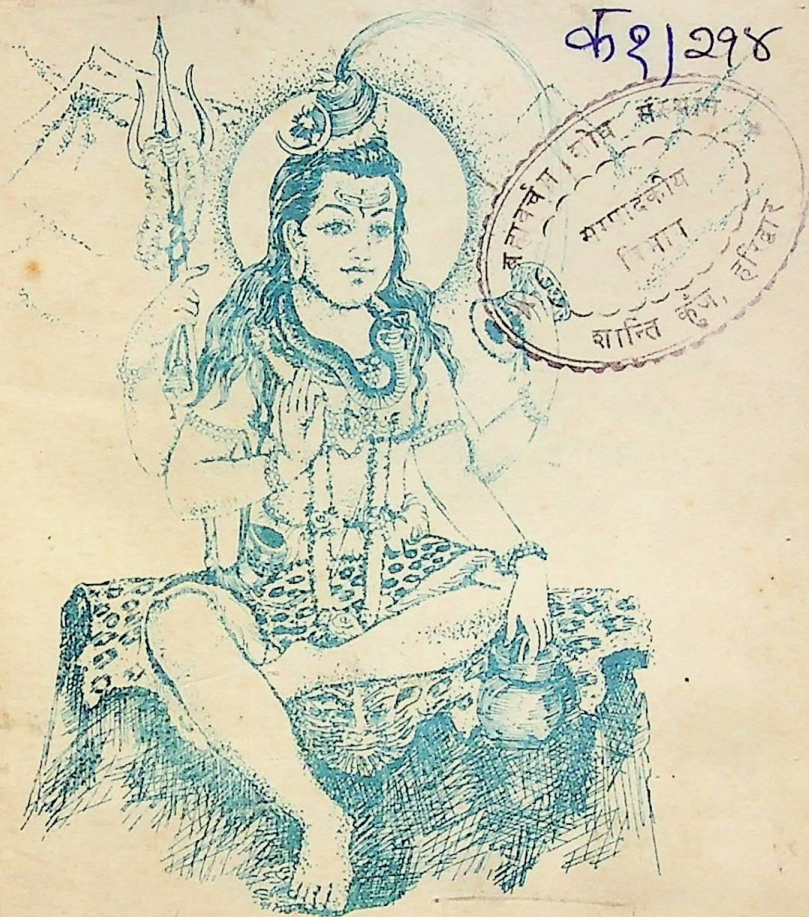 क १/२१४
ब्रह्मवर्चस शोध संस्थान
सम्पादकीय
विभाग
शान्ति कुँज, हरिद्वार